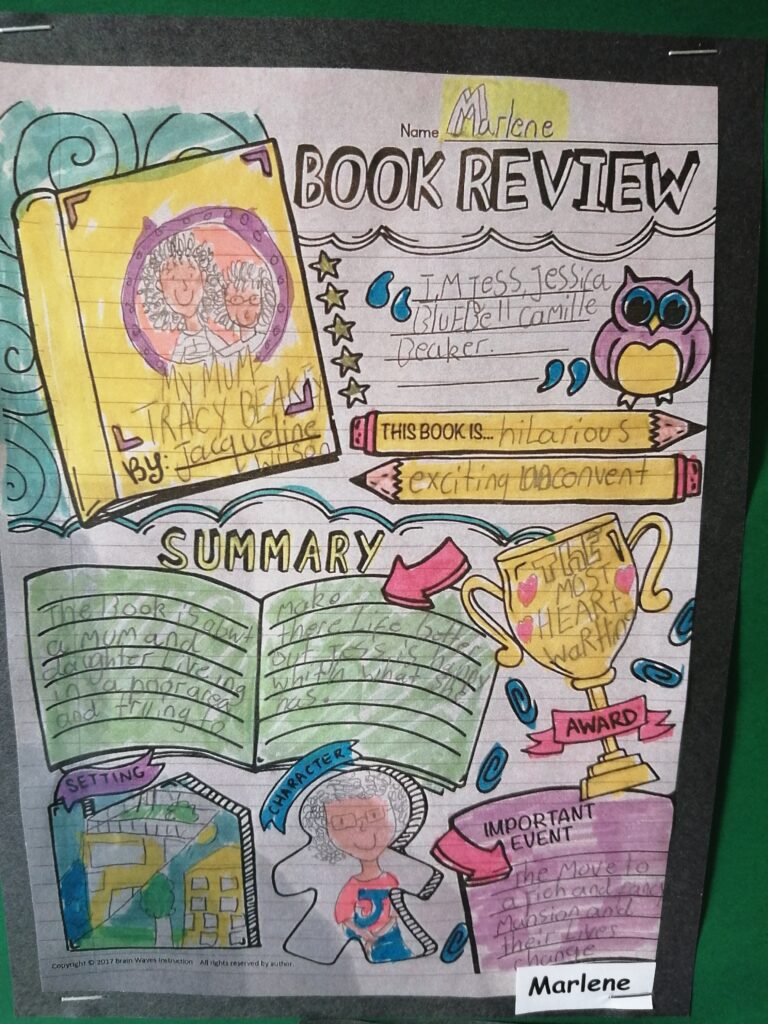 Name Marlene
BOOK REVIEW
MY MUM
TRACY BEAKER
BY: Jacqueline
Wilson
I,M Tess, Jessica
BluEBell camille
Beaker.
THIS BOOK IS... hilarious
exciting convent
SUMMARY
The Book is abwt
a mum and
daughter live ing
in a poor area
and trlling to
make
there Life better
but Jess is happy
whith what she
has.
THE
MOST
HEART
warming
AWARD
SETTING
CHARACTER
J
IMPORTANT
EVENT
the move to
a rich and fancy
Mansion and
their Lives
change
Copyright © 2017 Brain Waves Instruction All rights reserved by author.
Marlene